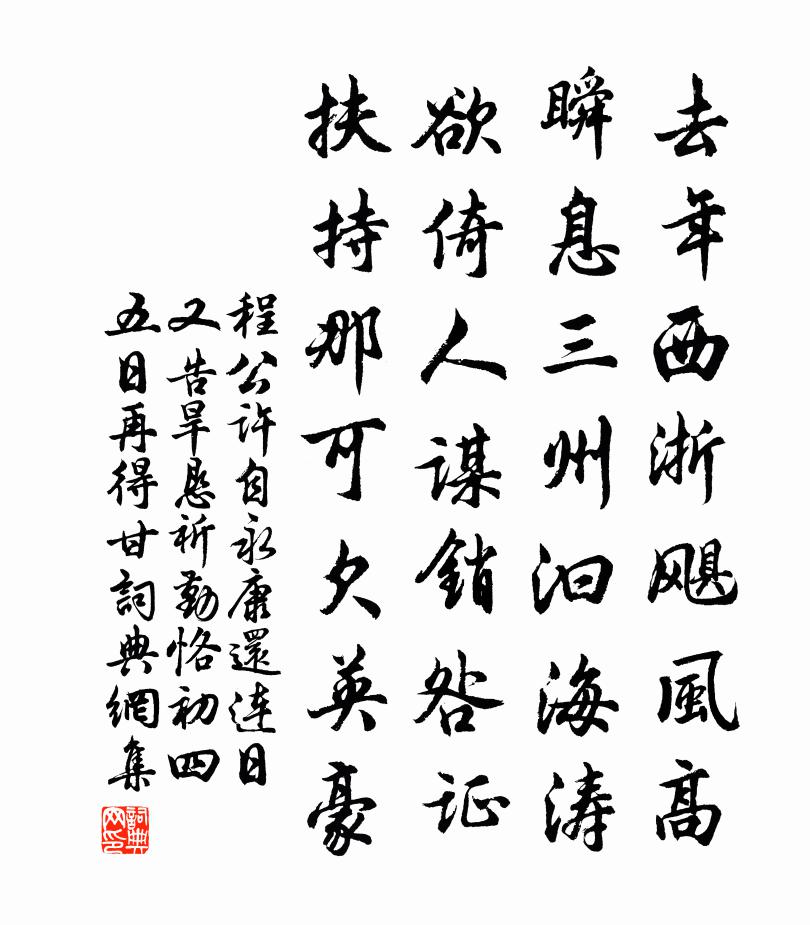 去年西浙飓風高
瞬息三州汩海涛
欲倚人謀銷咎证
扶持那可欠英豪
程公許自永康還連日
又告旱恳祈勤恪初四
五日再得甘詞典網集
詞典
网印